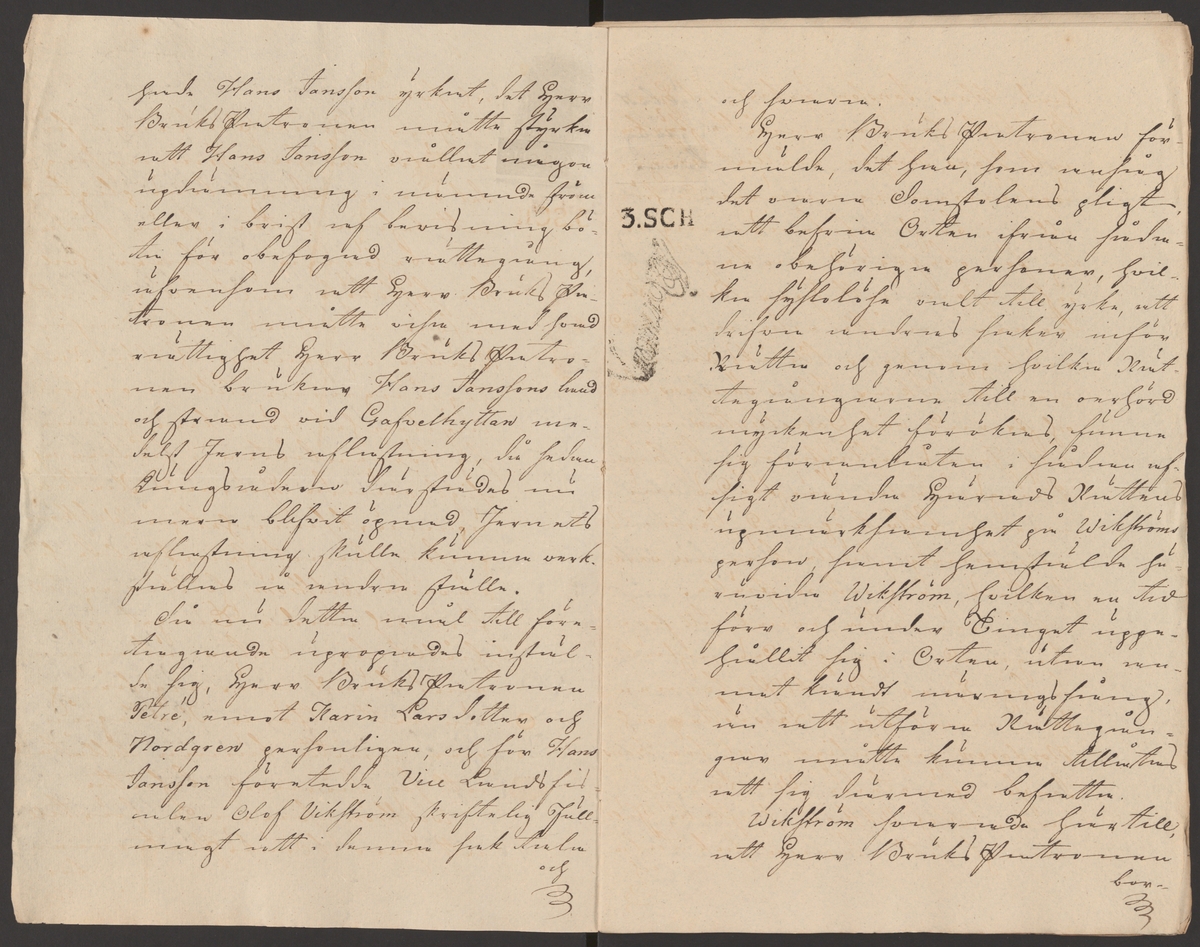 hade Hans Jansson yrkat, det Herr
Bruks Patronen måtte styrka
att Hans Jansson vållat någon
updämning i nämnde ström
eller i brist af bevisning bö-
ta för obefogad rättegång,
äfvensom att Herr Bruks Pa-
tronen måtte visa med hvad
rättighet Herr Bruks Patro-
nen brukar Hans Janssons land
och strand vid Gafvelhyttan me-
delst Jerns aflastning, då sedan
Kungsådern därstädes nu
mera blifvit öpnad, Jernets
aflastning skulle kunna verk-
ställas å andra ställe.
Då nu detta mål till före-
tagande upropades instäl-
de sig, Herr Bruks Patronen
Petré, emot Karin Larsdotter och
Nordgren personligen, och för Hans
Jansson företedde Vice Landsfis-
calen Olof Vikström skriftelig Full-
magt att i denna sak tala
och
och svara.
Herr Bruks Patronen för-
mälde, det han, som ansåg
det vara Domstolens pligt,
att befria Orten ifrån såda-
ne obehöriga personer, hvil-
ka sysslolöse valt till yrke, att
drifva andras saker inför
Rätta och genom hvilka Rät-
tegångarne till en oerhörd
myckenhet förökas, funne
sig föranlåten i sådan af-
sigt vända Härads Rättens
upmärksamhet på Wikströms
person, samt hemstälde hu-
ruvida Wikström, hvilken en tid
förr och under Tinget uppe-
hållit sig i Orten, utan an-
nat kändt näringsfång,
än att utföra Rättegån-
gar måtte kunna tillåtas
att sig därmed befatta.
Wikström svarade härtill,
att Herr Bruks Patronen
bor-
3.SCH